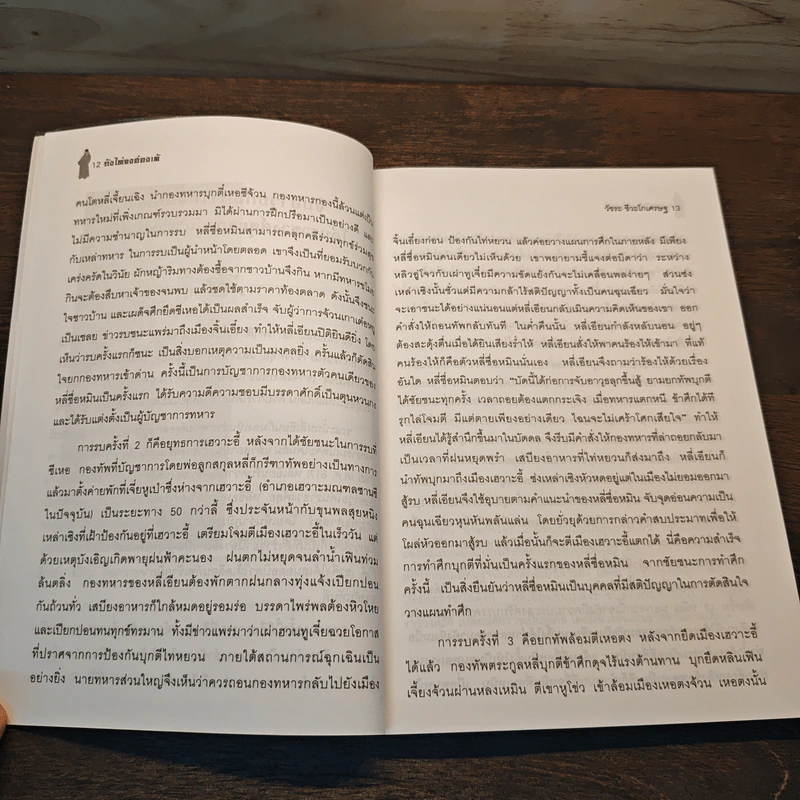 12 ถังไท่จงฮ่องเต้
คนโตหลี่เจี้ยนเฉิง นำกองทหารบุกตีเหอซีจ้วน กองทหารกองนี้ล้วนแต่เป็น
ทหารใหม่ที่เพิ่งเกณฑ์รวบรวมมา มิได้ผ่านการฝึกปรือมาเป็นอย่างดี และ
ไม่มีความชำนาญในการรบ หลี่ซื่อหมินสามารถคลุกคลีร่วมทุกข์ร่วมสุข
กับเหล่าทหาร ในการรบเป็นผู้นำหน้าโดยตลอด เขาจึงเป็นที่ยอมรับบวกกับ
เคร่งครัดในวินัย ผักหญ้าริมทางต้องซื้อจากชาวบ้านจึงกิน หากมีทหารขโมย
กินจะต้องสืบหาเจ้าของจนพบ แล้วชดใช้ตามราคาท้องตลาด ดังนั้นจึงชนะ
ใจชาวบ้าน และเผด็จศึกยึดซีเหอได้เป็นผลสำเร็จ จับผู้ว่าการจ้วนเกาเต๋อหยู
เป็นเชลย ข่าวรบชนะแพร่มาถึงเมืองจิ้นเอี๋ยง ทำให้หลี่เอียนปิติยินดียิ่ง โดย
เห็นว่ารบครั้งแรกก็ชนะ เป็นสิ่งบอกเหตุความเป็นมงคลยิ่ง ครั้นแล้วก็ตัดสิน
ใจยกกองทหารเข้าด่าน ครั้งนี้เป็นการบัญชาการกองทหารตัวคนเดียวของ
หลี่ซื่อหมินเป็นครั้งแรก ได้รับความดีความชอบมีบรรดาศักดิ์เป็นตุนหวนกง
และได้รับแต่งตั้งเป็นผู้บัญชาการทหาร
การรบครั้งที่ 2 ก็คือยุทธการเฮวาะอี้ หลังจากได้ชัยชนะในการรบที่
ซีเหอ กองทัพที่บัญชาการโดยพ่อลูกสกุลหลี่ก็กรีฑาทัพอย่างเป็นทางการ
แล้วมาตั้งค่ายพักที่เจี่ยหูเป่าซึ่งห่างจากเฮวาะอี้ (อำเภอเฮวาะมณฑลซานซี
ในปัจจุบัน) เป็นระยะทาง 50 กว่าลี้ ซึ่งประจันหน้ากับขุนพลสุยหนิง
เหล่าเชิงที่เฝ้าป้องกันอยู่ที่เฮวาะอี้ เตรียมโจมตีเมืองเฮวาะอี้ในเร็ววัน แต่
ด้วยเหตุบังเอิญเกิดพายุฝนฟ้าคะนอง ฝนตกไม่หยุดจนลำน้ำเฟินท่วม
ล้นตลิ่ง กองทหารของหลี่เอียนต้องพักตากฝนกลางทุ่งแจ้งเปียกปอน
กันถ้วนทั่ว เสบียงอาหารก็ใกล้หมดอยู่รอมร่อ บรรดาไพร่พลต้องหิวโหย
และเปียกปอนทนทุกข์ทรมาน ทั้งมีข่าวแพร่มาว่าเผ่าฮวนทูเจี๋ยฉวยโอกาส
ที่ปราศจากการป้องกันบุกตีไท่หยวน ภายใต้สถานการณ์ฉุกเฉินเป็น
อย่างยิ่ง นายทหารส่วนใหญ่จึงเห็นว่าควรถอนกองทหารกลับไปยังเมือง
วัชระ ชีวะโกเศรษฐ 13
จิ้นเอี๋ยงก่อน ป้องกันไท่หยวน แล้วค่อยวางแผนการศึกในภายหลัง มีเพียง
หลี่ซื่อหมินคนเดียวไม่เห็นด้วย เขาพยายามชี้แจงต่อบิดาว่า ระหว่าง
หลิวอู่โจวกับเผ่าทูเจี๋ยมีความขัดแย้งกันจะไม่เคลื่อนพลง่ายๆ ส่วนซ่ง
เหล่าเชิงนั้นชั่วแต่มีความกล้าไร้สติปัญญาทั้งเป็นคนฉุนเฉียว มั่นใจว่า
จะเอาชนะได้อย่างแน่นอนแต่หลี่เอียนกลับเมินความคิดเห็นของเขา ออก
คำสั่งให้ถอนทัพกลับทันที ในค่ำคืนนั้น หลี่เอียนกำลังหลับนอน อยู่ๆ
ต้องสะดุ้งตื่นเมื่อได้ยินเสียงร่ำไห้ หลี่เอียนสั่งให้พาคนร้องไห้เข้ามา ที่แท้
คนร้องไห้ก็คือตัวหลี่ซื่อหมินนั่นเอง หลี่เอียนจึงถามว่าร้องไห้ด้วยเรื่อง
อันใด หลี่ซื่อหมินตอบว่า "บัดนี้ได้ก่อการจับอาวุธลุกขึ้นสู้ ยามยกทัพบุกตี
ได้ชัยชนะทุกครั้ง เวลาถอยต้องแตกกระเจิง เมื่อทหารแตกหนี ข้าศึกได้ที
รุกไล่โจมตี มีแต่ตายเพียงอย่างเดียว ไฉนจะไม่เศร้าโศกเสียใจ" ทำให้
หลี่เอียนได้รู้สำนึกขึ้นมาในบัดดล จึงรีบมีคำสั่งให้กองทหารที่ล่าถอยกลับมา
เป็นเวลาที่ฝนหยุดพรำ เสบียงอาหารที่ไท่หยวนก็ส่งมาถึง หลี่เอียนก็
นำทัพบุกมาถึงเมืองเฮวาะอี้ ซ่งเหล่าเชิงหัวหดอยู่แต่ในเมืองไม่ยอมออกมา
สู้รบ หลี่เอียนจึงใช้อุบายตามคำแนะนำของหลี่ซื่อหมิน จับจุดอ่อนความเป็น
คนฉุนเฉียวหุนหันพลันแล่น โดยยั่วยุด้วยการกล่าวคำสบประมาทเพื่อให้
โผล่หัวออกมาสู้รบ แล้วเมื่อนั้นก็จะตีเมืองเฮวาะอี้แตกได้ นี่คือความสำเร็จ
การทำศึกบุกตีที่มั่นเป็นครั้งแรกของหลี่ซื่อหมิน จากชัยชนะการทำศึก
ครั้งนี้ เป็นสิ่งยืนยันว่าหลี่ซื่อหมินเป็นบุคคลที่มีสติปัญญาในการตัดสินใจ
วางแผนทำศึก
การรบครั้งที่ 3 คือยกทัพล้อมตีเหอตง หลังจากยึดเมืองเฮวาะอี้
ได้แล้ว กองทัพตระกูลหลี่บุกตีข้าศึกดุจไร้แรงต้านทาน บุกยึดหลินเฟิน
เจี้ยงจ้วนผ่านหลงเหมิน ตีเขาหูโข่ว เข้าล้อมเมืองเหอตงจ้วน เหอตงนั้น